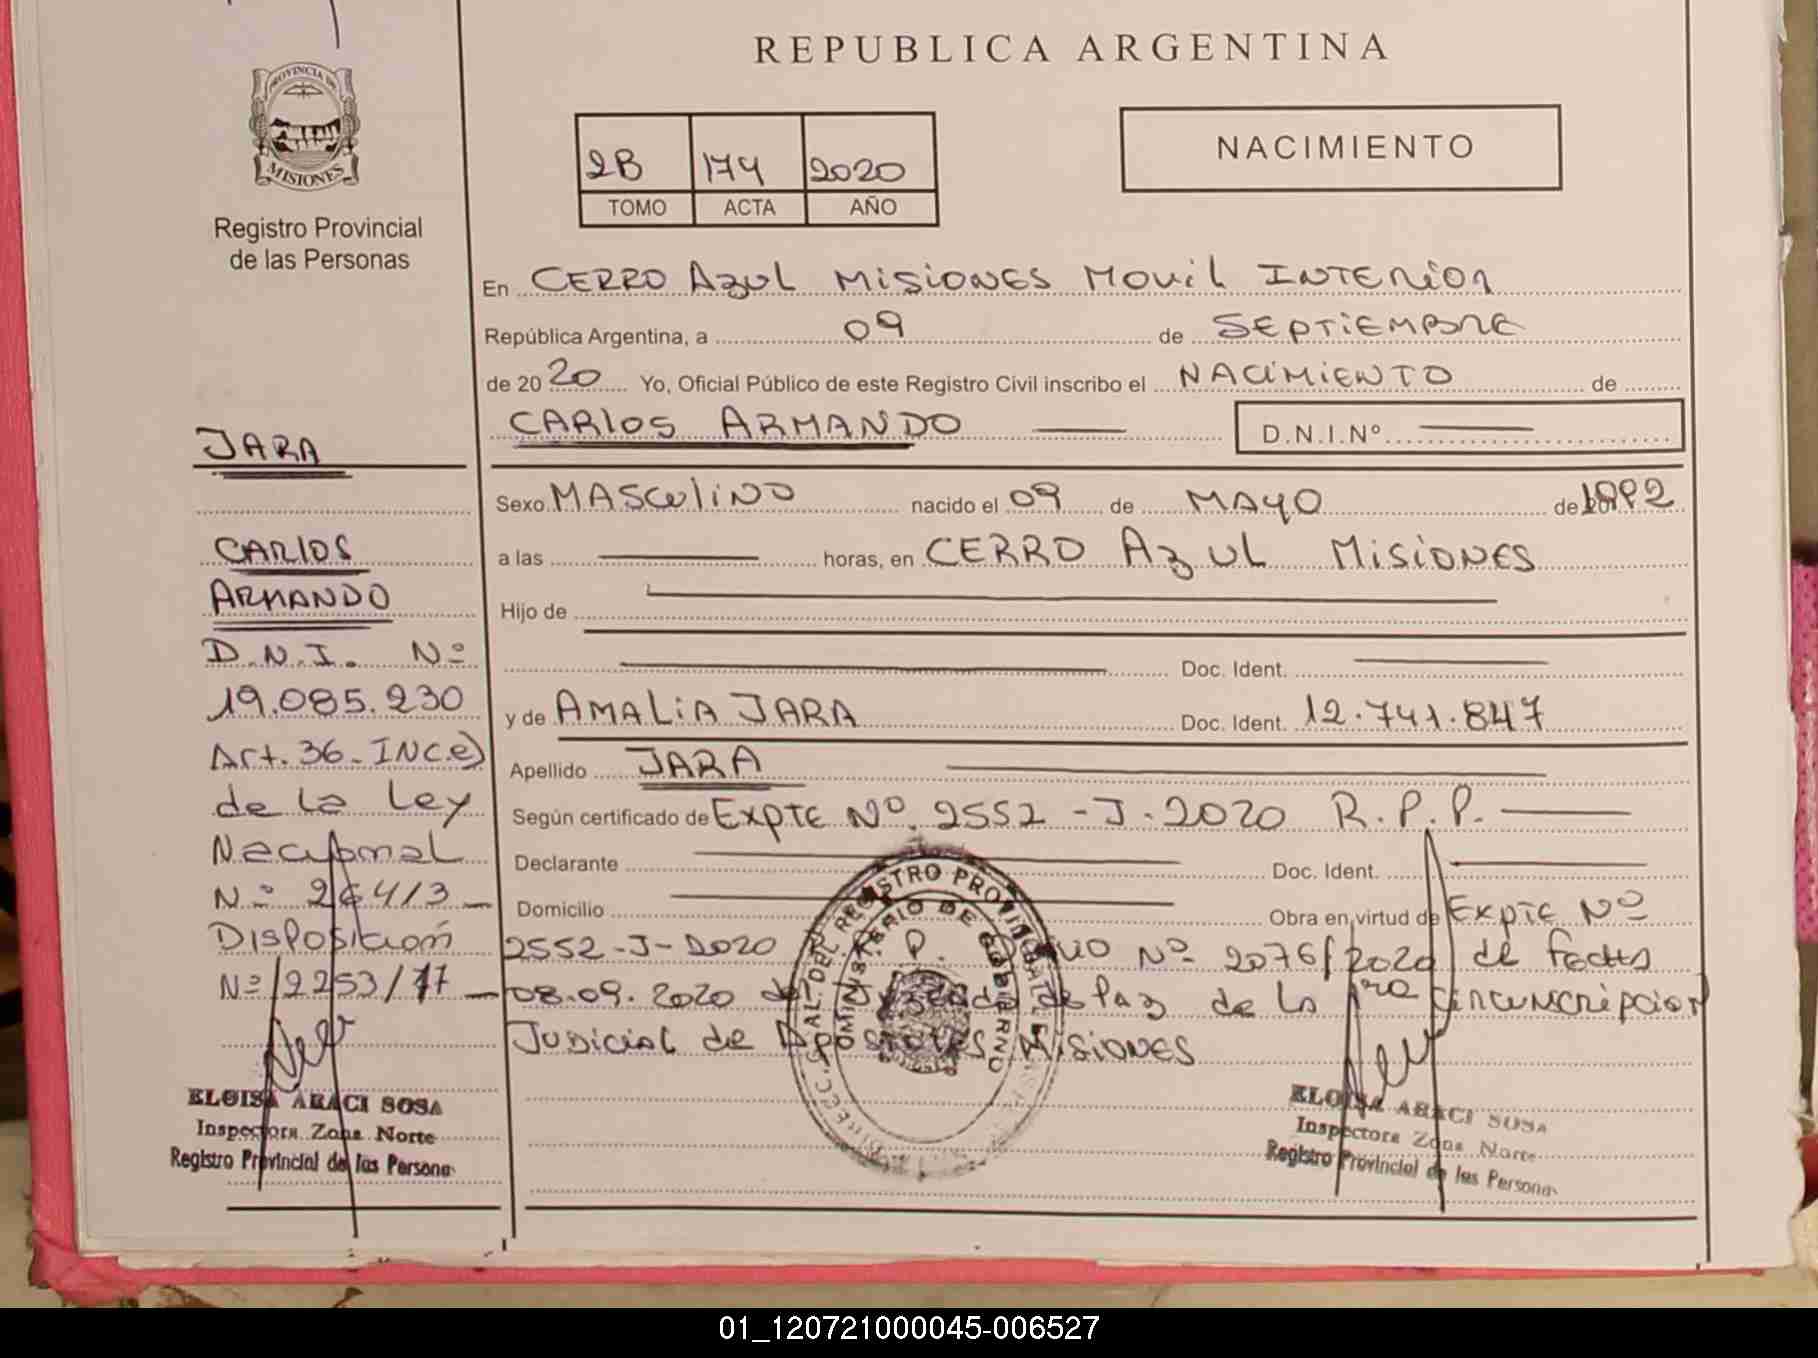 REPUBLICA ARGENTINA
PROVINCIA DE
MISIONES
Registro Provincial
de las Personas
2B 174 2020
TOMO ACTA AÑO
NACIMIENTO
En CERRO AZUL MISIONES MOVIL INTERIOR
República Argentina, a 09 de SEPTIEMBRE
de 2020 Yo, Oficial Público de este Registro Civil inscribo el NACIMIENTO de
CARLOS ARMANDO D.N.I.Nº
JARA
CARLOS
ARMANDO
D.N.I. Nº
19.085.230
Art. 36 - INC.e)
de la Ley
Nacional
Nº 26413 -
DISPOSICIÓN
Nº 2253/17 -
ELOISA ARACI SOSA
Inspectora Zona Norte
Registro Provincial de las Personas
Sexo MASCULINO nacido el 09 de MAYO de 1992
a las horas, en CERRO AZUL MISIONES
Hijo de
Doc. Ident.
y de AMALIA JARA Doc. Ident. 12.741.847
Apellido JARA
Según certificado de EXPTE Nº 2552 - J - 2020 R.P.P.
Declarante Doc. Ident.
Domicilio Obra en virtud de EXPTE Nº
2552 - J - 2020 P. Nº 2076/2020 de fecha
08.09.2020 del Juzgado de Paz de la 1ra Circunscripcion
Judicial de Apostoles MISIONES
DIRECC. GRAL. DEL REGISTRO PROVINCIAL DE
MINISTERIO DE GOBIERNO
ELOISA ARACI SOSA
Inspectora Zona Norte
Registro Provincial de las Personas
01_120721000045-006527